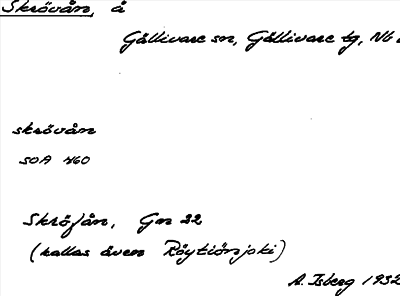 Skrövån, å
Gällivare sn, Gällivare tg, Nb
skrövån
SOA 460
Skröfån, Gn 22
(kallas även Röytiönjoki)
A. Isberg 1932